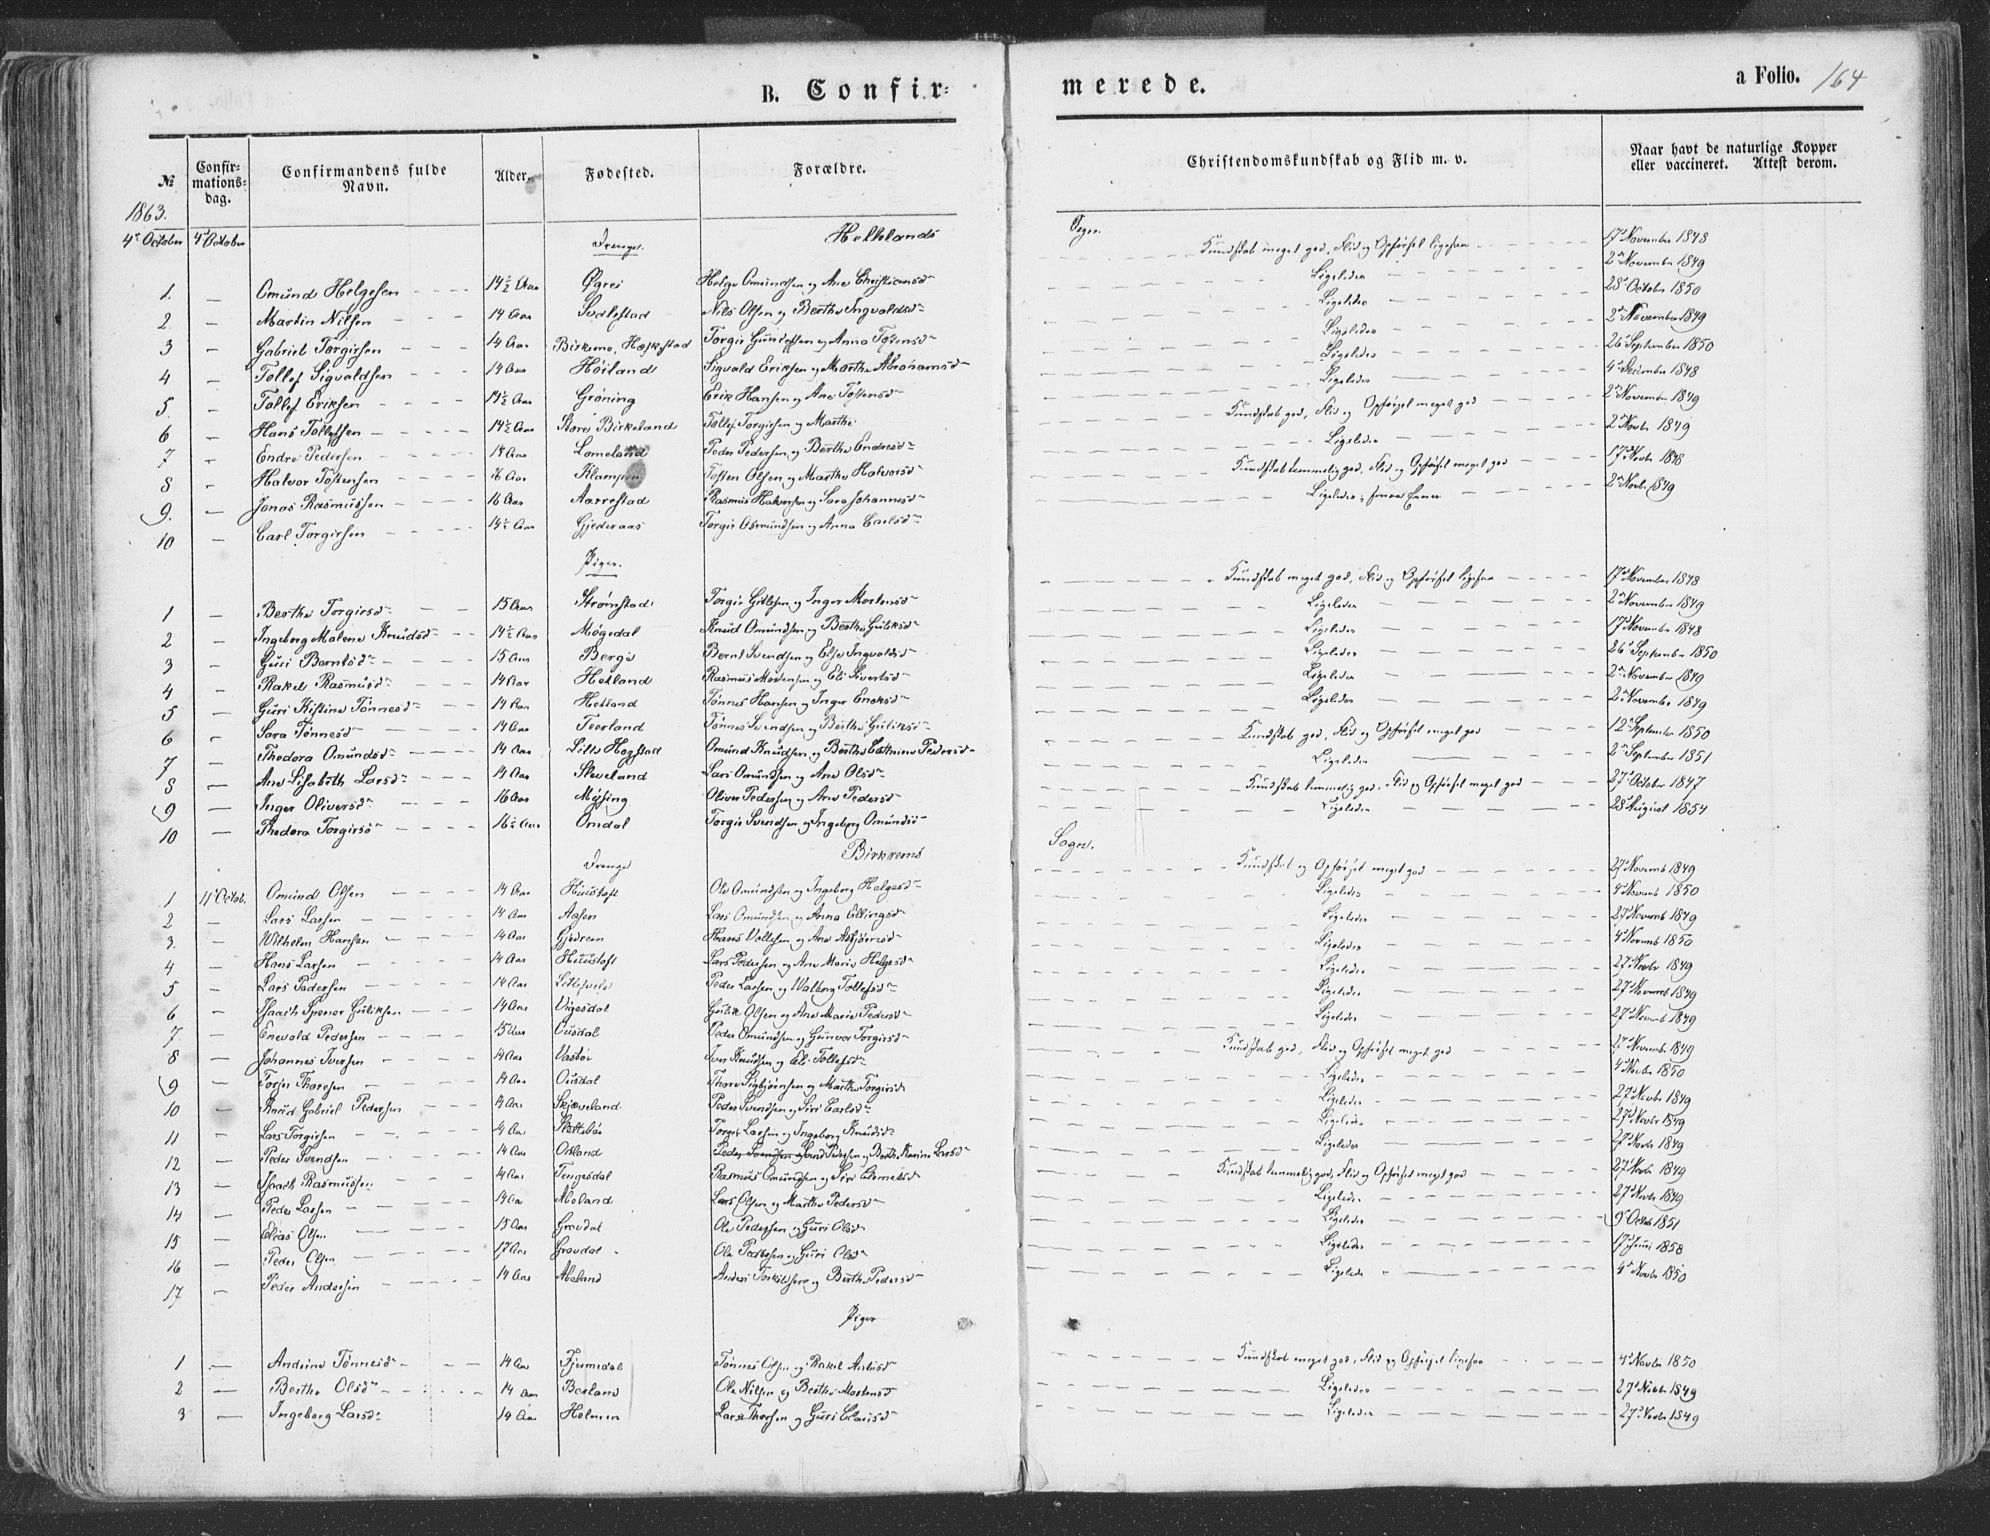 B. Confir- merede. a Folio. 164
№ Confirmationsdag. Confirmandens fulde Navn. Alder. Fødested. Forældre. Christendomskundskab og Flid m. v. Naar havt de naturlige Kopper eller vaccineret. Attest derom.
1863.
4de October 4de October Drenge. Hellelands Sogn.
1. — Omund Helgesen 14½ Aar Øgrei Helge Omundsen og Ane Christiansd Kundskab meget god, Flid og Opførsel ligesaa 17 November 1848
2. — Martin Nilsen 14 Aar Svalestad Nils Olsen og Berthe Ingvaldsd Ligeledes 2 November 1849
3 — Gabriel Torgirsen 14 Aar Birkemo, Hæskestad Torgir Gundersen og Anna Tostensd Ligeledes 28 October 1850
4 — Tollef Sigvaldsen 14 Aar Høiland Sigvald Eriksen og Marthe Abrahamsd Ligeledes 2 November 1849
5. — Tollef Eriksen 14½ Aar Grøning Erik Hansen og Ane Tostensd Ligeledes 26 September 1850
6 — Hans Tollefsen 14½ Aar Store Birkeland Tollef Torgirsen og Marthe Ligeledes 4 December 1848
7 — Endre Pedersen 14 Aar Lomeland Peder Pedersen og Berthe Endresd Kundskab god, Flid og Opførsel meget god 2 November 1849
8 — Halvor Tostensen 16 Aar Klampen Tosten Olsen og Marthe Halvorsd Ligeledes 2 Novbr 1849
9. — Jonas Rasmussen 16 Aar Aarrestad Rasmus Halvorsen og Sara Johannesd Kundskab temmelig god, Flid og Opførsel meget god 17 Novbr 1848
10 — Carl Torgirsen 14½ Aar Gjederaas Torgir Osmundsen og Anna Carlsd Ligeledes 2 Novbr. 1849
Piger.
1 — Berthe Torgirsd 15 Aar Strømstad Torgir Gitlesen og Inger Mortensd Kundskab meget god, Flid og Opførsel ligesaa 17 November 1848
2 — Ingeborg Malene Knudsd 14½ Aar Møgedal Knud Omundsen og Berthe Guliksd Ligeledes 2 November 1849
3 — Guri Berntsd 15 Aar Berge Bernt Svendsen og Else Ingvaldsd Ligeledes 17 November 1848
4 — Rakel Rasmusd 14 Aar Hetland Rasmus Mortensen og Eli Sivertsd Ligeledes 26 September 1850
5 — Guri Kistine Tønnesd 14 Aar Hetland Tønnes Hansen og Inger Eriksd Ligeledes 2 November 1849
6 — Sara Tønnesd 14 Aar Terland Tønnes Svendsen og Berthe Guliksd Ligeledes 2 November 1849
7 — Thedora Omundsd 14 Aar Lille Hegstad Omund Knudsen og Berthe Cathrine Pedersd Kundskab god, Flid og Opførsel meget god 12 September 1850
8 — Ane Lisabeth Larsd 14 Aar Sleveland Lars Omundsen og Ane Olsd Ligeledes 2 September 1851
9 — Inger Oliversd 16 Aar Møsing Oliver Pedersen og Ane Pedersd Kundskab temmelig god, Flid og Opførsel meget god 27 October 1847
10 — Thedora Torgirsd 16½ Aar Omdal Torgir Svendsen og Ingeborg Omundsd Ligeledes 28 August 1854
Drenge Birkrems Sogn.
1 11 Octob. Omund Olsen 14 Aar Hustoft Ole Omundsen og Ingeborg Helgesd Kundskab og Opførsel meget god 27 Novemb 1849
2 — Lars Larsen 14 Aar Aasen Lars Omundsen og Anna Ellingsd Ligeledes 4 Novemb 1850
3. — Wilhelm Hansen 14 Aar Gjedrem Hans Vollesen og Ane Asbjørnsd Ligeledes 27 Novemb 1849
4 — Hans Larsen 14 Aar Hustoft Lars Pedersen og Ane Marie Helgesd Ligeledes 4 Novemb 1850
5 — Lars Pedersen 14 Aar Peder Larsen og Walborg Tollefsd Ligeledes 27 Novbr 1849
6 — Isach Spener Guliksen 14 Aar Vigesdal Gulik Olsen og Ane Marie Pedersd Ligeledes 27 Novemb 1849
7 — Enevold Pedersen 15 Aar Ousdal Peder Omundsen og Gunvor Torgirsd Ligeledes 27 Novemb 1849
8 — Johannes Iversen 14 Aar Vasbø Iver Knudsen og Eli Tollefsd Kundskab god, Flid og Opførsel meget god 27 Novembr 1849
9 — Torger Thoresen 14 Aar Ousdal Thore Sigbjørnsen og Marthe Torgirsd Ligeledes 4 Novbr 1850
10 — Knud Gabriel Pedersen 14 Aar Skjæveland Peder Svendsen og Siri Carlsd Ligeledes 27 Novbr 1849
11 — Lars Torgirsen 14 Aar Slettebø Torger Larsen og Ingeborg Knudsd Ligeledes 27 Novbr 1849
12 — Peder Svendsen 14 Aar Orsland Peder Svendsen og Svend Pedersen og Berthe Karine Larsd Ligeledes 27 Novbr 1849
13 — Isach Rasmussen 14 Aar Tengesdal Rasmus Omundsen og Siri Clemetsd Kundskab temmelig god, Flid og Opførsel meget god 27 Novbr 1849
14 — Peder Larsen 14 Aar Aboland Lars Olsen og Marthe Pedersd Ligeledes 27 Novbr 1849
15 — Elias Olsen 15 Aar Gravdal Ole Pedersen og Guri Olsd Ligeledes 9 Octob 1851
16 — Peder Olsen 17 Aar Gravdal Ole Pedersen og Guri Olsd Ligeledes 17 Juni 1858
17 — Peder Andersen 14 Aar Aboland Anders Torkildsen og Berthe Pedersd Ligeledes 4 Novbr 1850
Piger
1 — Andrine Tønnesd 14 Aar Fjermedal Tønnes Olsen og Rakel Antusd Kundskab meget god, Flid og Opførsel ligesaa 4 Novbr 1850
2 — Berthe Olsd 14 Aar Berland Ole Nilsen og Berthe Mortensd Ligeledes 27 Novbr 1849
3 — Ingeborg Larsd 14 Aar Holmen Lars Thorsen og Guri Clausd Ligeledes 27 Novbr 1849